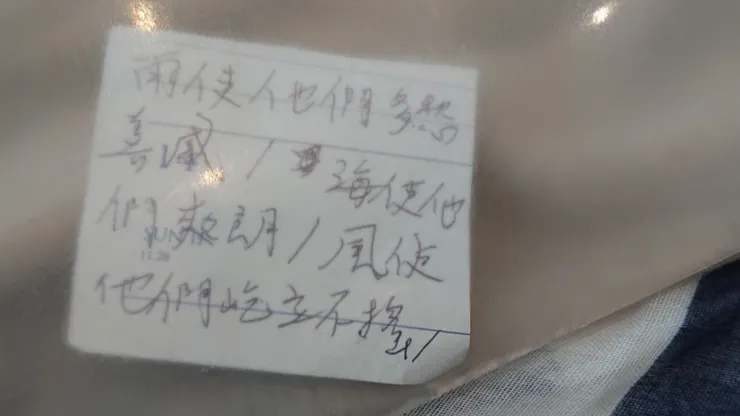 雨使他們多愁
善感/海使他
們朗/風使
他們屹立不搖/